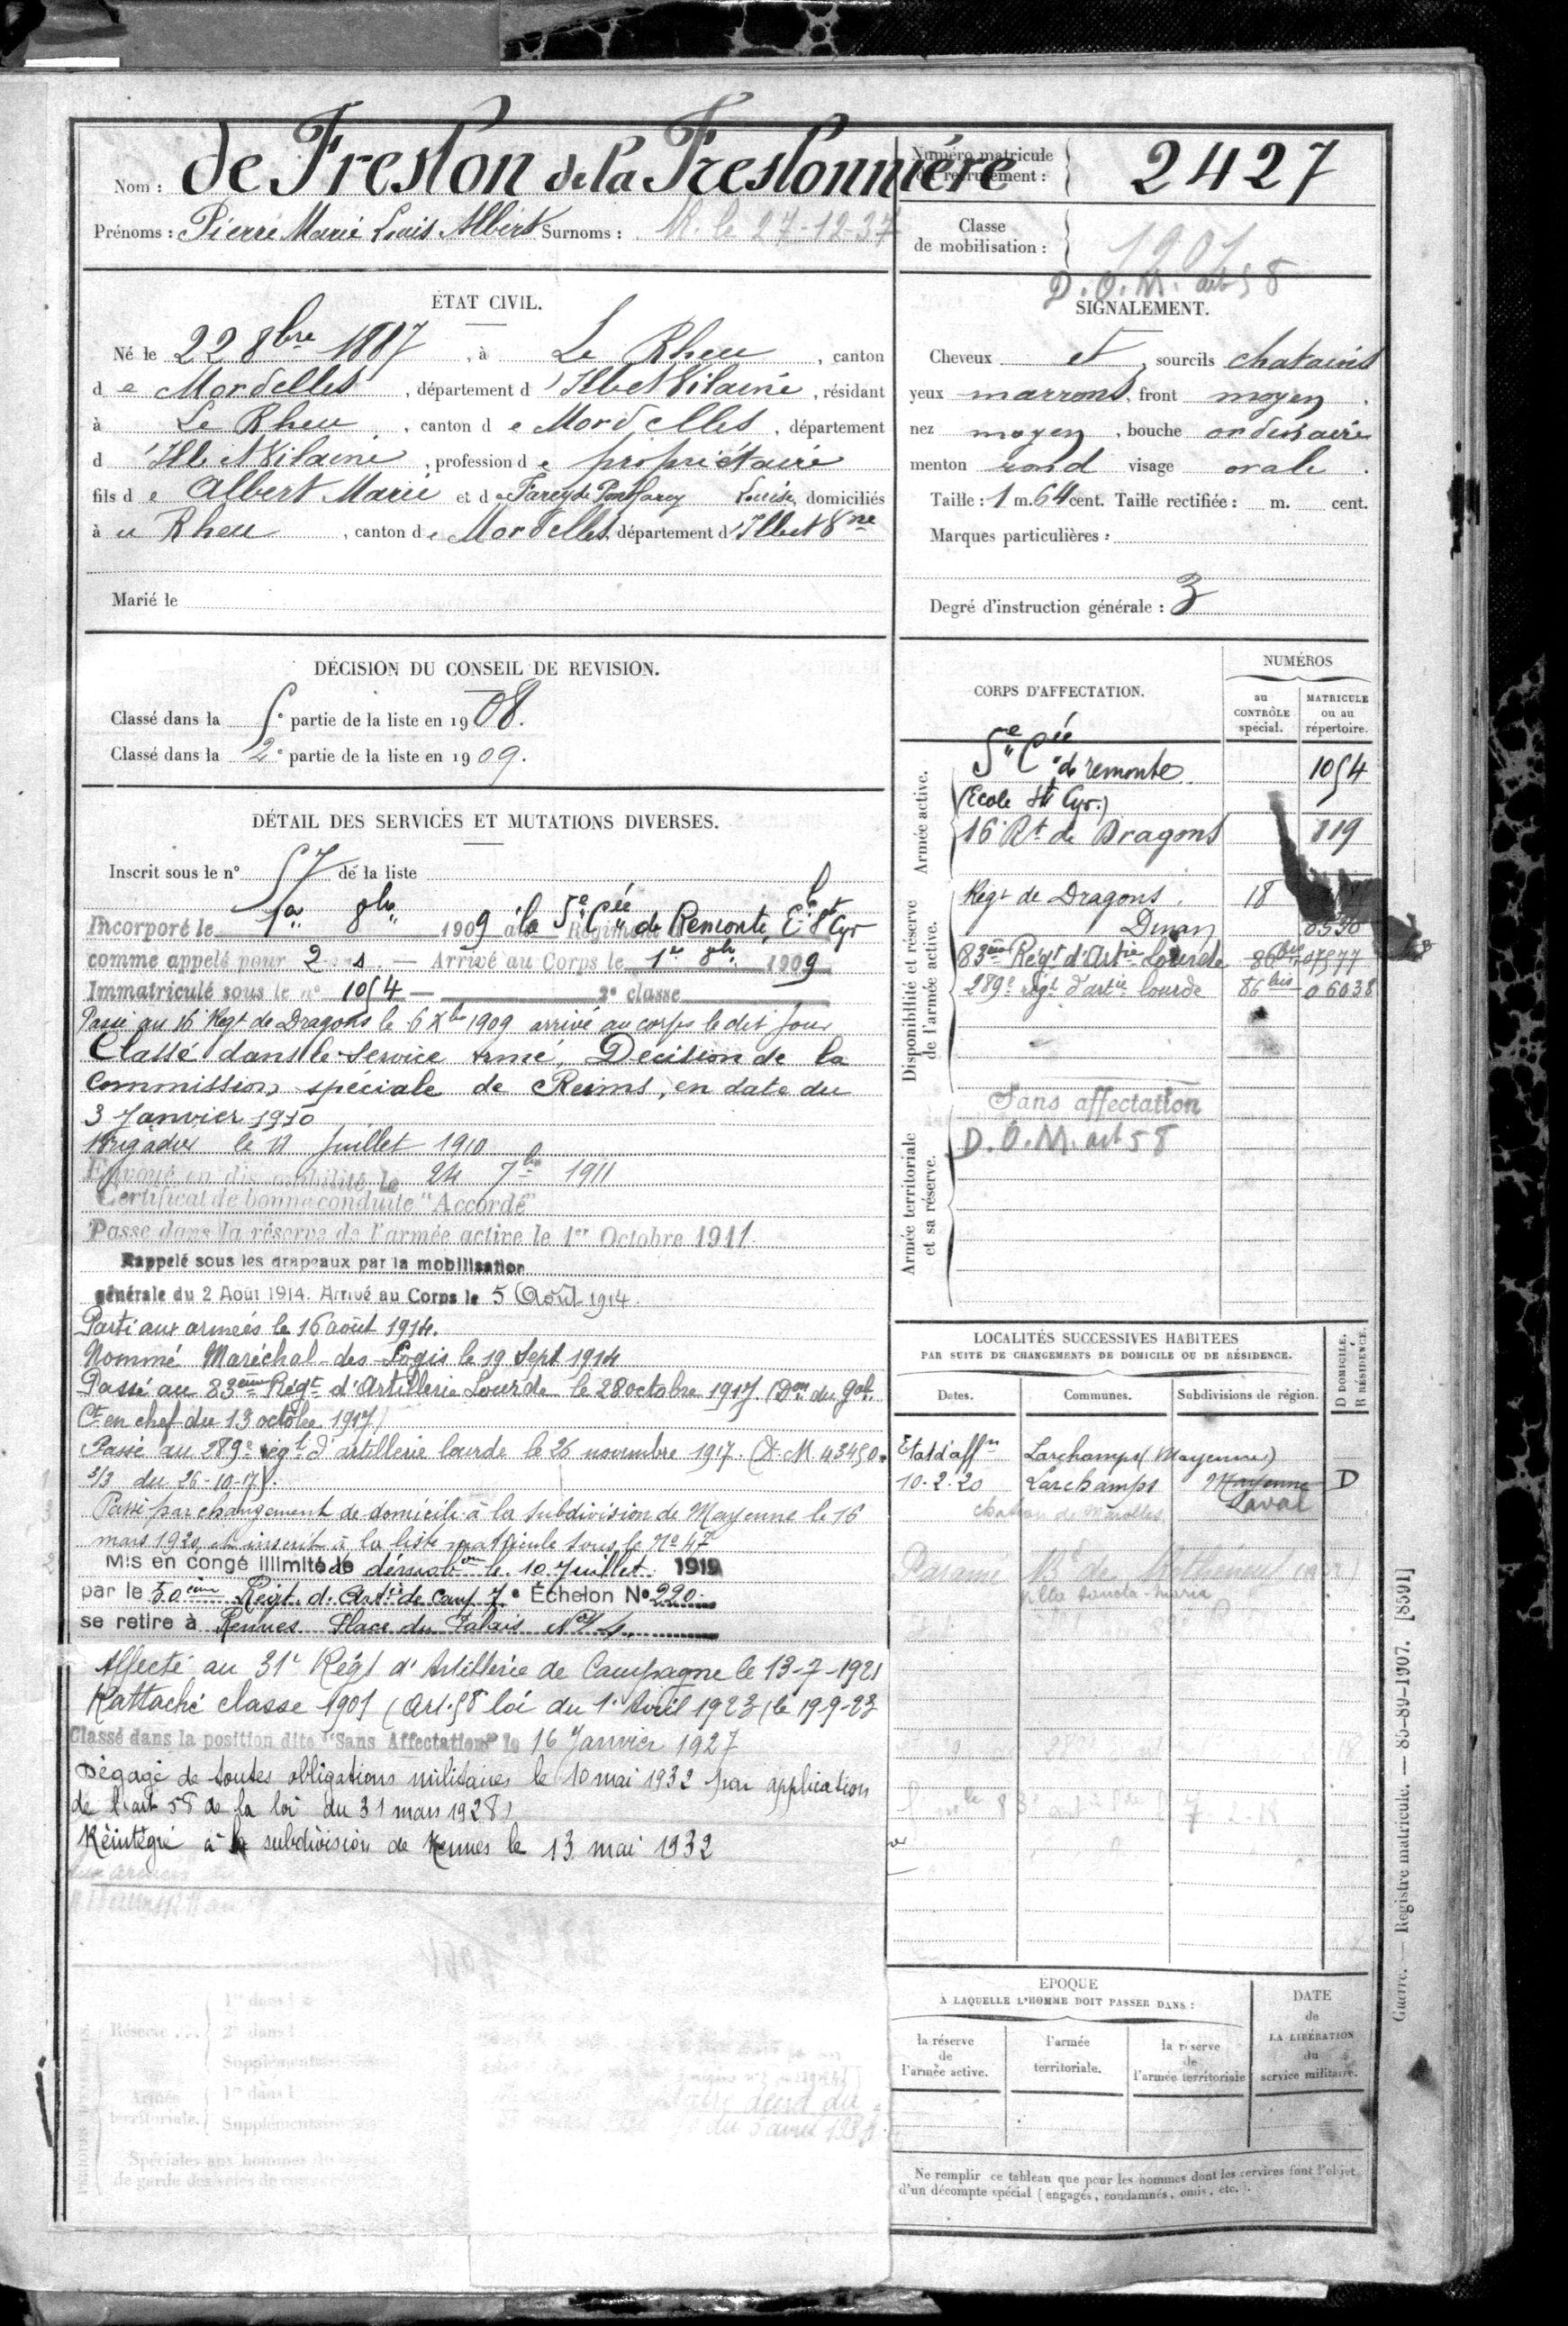 Nom : de Freslon de la Freslonnière
Numéro matricule du recrutement : 2427
Prénoms : Pierre Marie Louis Albert Surnoms : R. le 27-12-37
Classe de mobilisation : 1901
D.O.M. art 58
ÉTAT CIVIL.
Né le 22 8bre 1887, à Le Rheu, canton
de Mordelles, département d'Ille et Vilaine, résidant
à Le Rheu, canton de Mordelles, département
d'Ille et Vilaine, profession de propriétaire
fils de Albert Marie et de Farcy de Pontfarcy Louise, domiciliés
à u Rheu, canton de Mordelles, département d'Ille et Vne
Marié le
SIGNALEMENT.
Cheveux et, sourcils chatains
yeux marrons, front moyen.
nez moyen, bouche ordinaire
menton rond visage ovale.
Taille : 1 m. 64 cent. Taille rectifiée : m. cent.
Marques particulières :
Degré d'instruction générale : 3
DÉCISION DU CONSEIL DE REVISION.
Classé dans la 5e partie de la liste en 1908.
Classé dans la 2e partie de la liste en 1909.
DÉTAIL DES SERVICES ET MUTATIONS DIVERSES.
Inscrit sous le n° 57 de la liste
Incorporé le 1er 8bre 1909 à la 5e Cie de Remonte, Ele St Cyr
comme appelé pour 2 ans. — Arrivé au Corps le 1er 8bre 1909
Immatriculé sous le n° 1054 — 2e classe
Passé au 16 Regt de Dragons le 6 Xbre 1909 arrivé au corps le dit jour
Classé dans le Service armé, Décision de la
Commission spéciale de Reims, en date du
3 Janvier 1910
Brigadier le 11 Juillet 1910
Envoyé en disponibilité le 24 7bre 1911
Certificat de bonne conduite "Accordé"
Passé dans la réserve de l'armée active le 1er Octobre 1911.
Rappelé sous les drapeaux par la mobilisation
générale du 2 Août 1914. Arrivé au Corps le 5 Août 1914.
Parti aux armées le 16 août 1914.
Nommé Maréchal-des-Logis le 19 Sept 1914
Passé au 83ème Régt d'Artillerie Lourde le 28 octobre 1917. (Don du Gal
Ct en chef du 13 octobre 1917)
Passé au 289e régt d'artillerie lourde le 26 novembre 1917. (D.M 43450.
3/3 du 26-10-17).
Passé par changement de domicile à la subdivision de Mayenne le 16
mars 1920 et inscrit à la liste matricule sous le No 47
Mis en congé illimité de démobon le 10 Juillet 1919
par le 50ème Régt d'Artie de camp 7e Échelon No 220
se retire à Rennes Place du Palais No 4
Affecté au 31e Régt d'Artillerie de Campagne le 13-7-1921
Rattaché classe 1901 (Art. 58 loi du 1er Avril 1923) le 19-9-23
Classé dans la position dite "Sans Affectation" le 16 Janvier 1927
Dégagé de toutes obligations militaires le 10 mai 1932 par application
de l'art 58 de la loi du 31 mars 1928)
Réintégré à la subdivision de Rennes le 13 mai 1932
CORPS D'AFFECTATION.
NUMÉROS
au CONTRÔLE spécial.
MATRICULE ou au répertoire.
Armée active.
5e Cie de remonte 1054
(École St Cyr.)
16 Rt de Dragons 819
Disponibilité et réserve de l'armée active.
Regt de Dragons. 18
Dinan
83ème Régt d'Artie Lourde 86bis 07577
289e régt d'artie lourde 86 bis 06038
Armée territoriale et sa réserve.
Sans affectation
D.O.M. art 58
LOCALITÉS SUCCESSIVES HABITÉES
PAR SUITE DE CHANGEMENTS DE DOMICILE OU DE RÉSIDENCE.
D DOMICILE. R RÉSIDENCE.
Dates. Communes. Subdivisions de région.
Etat d'affon Larchamps (Mayenne)
10-2-20 Larchamps Mayenne D
Laval
chateau de Marolles
Paramé
villa Sancta-Maria
ÉPOQUE
À LAQUELLE L'HOMME DOIT PASSER DANS :
la réserve de l'armée active.
l'armée territoriale.
la réserve de l'armée territoriale
DATE de LA LIBÉRATION du service militaire.
Ne remplir ce tableau que pour les hommes dont les services font l'objet
d'un décompte spécial (engagés, condamnés, omis, etc.).
Réserve
1re dans l
2e dans l
Supplémentaire
Armée territoriale.
1re dans l
Supplémentaire
Spéciales aux hommes du
de garde des voies de
du 5 avril
Guerre. — Registre matricule. — 85-89-1907. [8591]